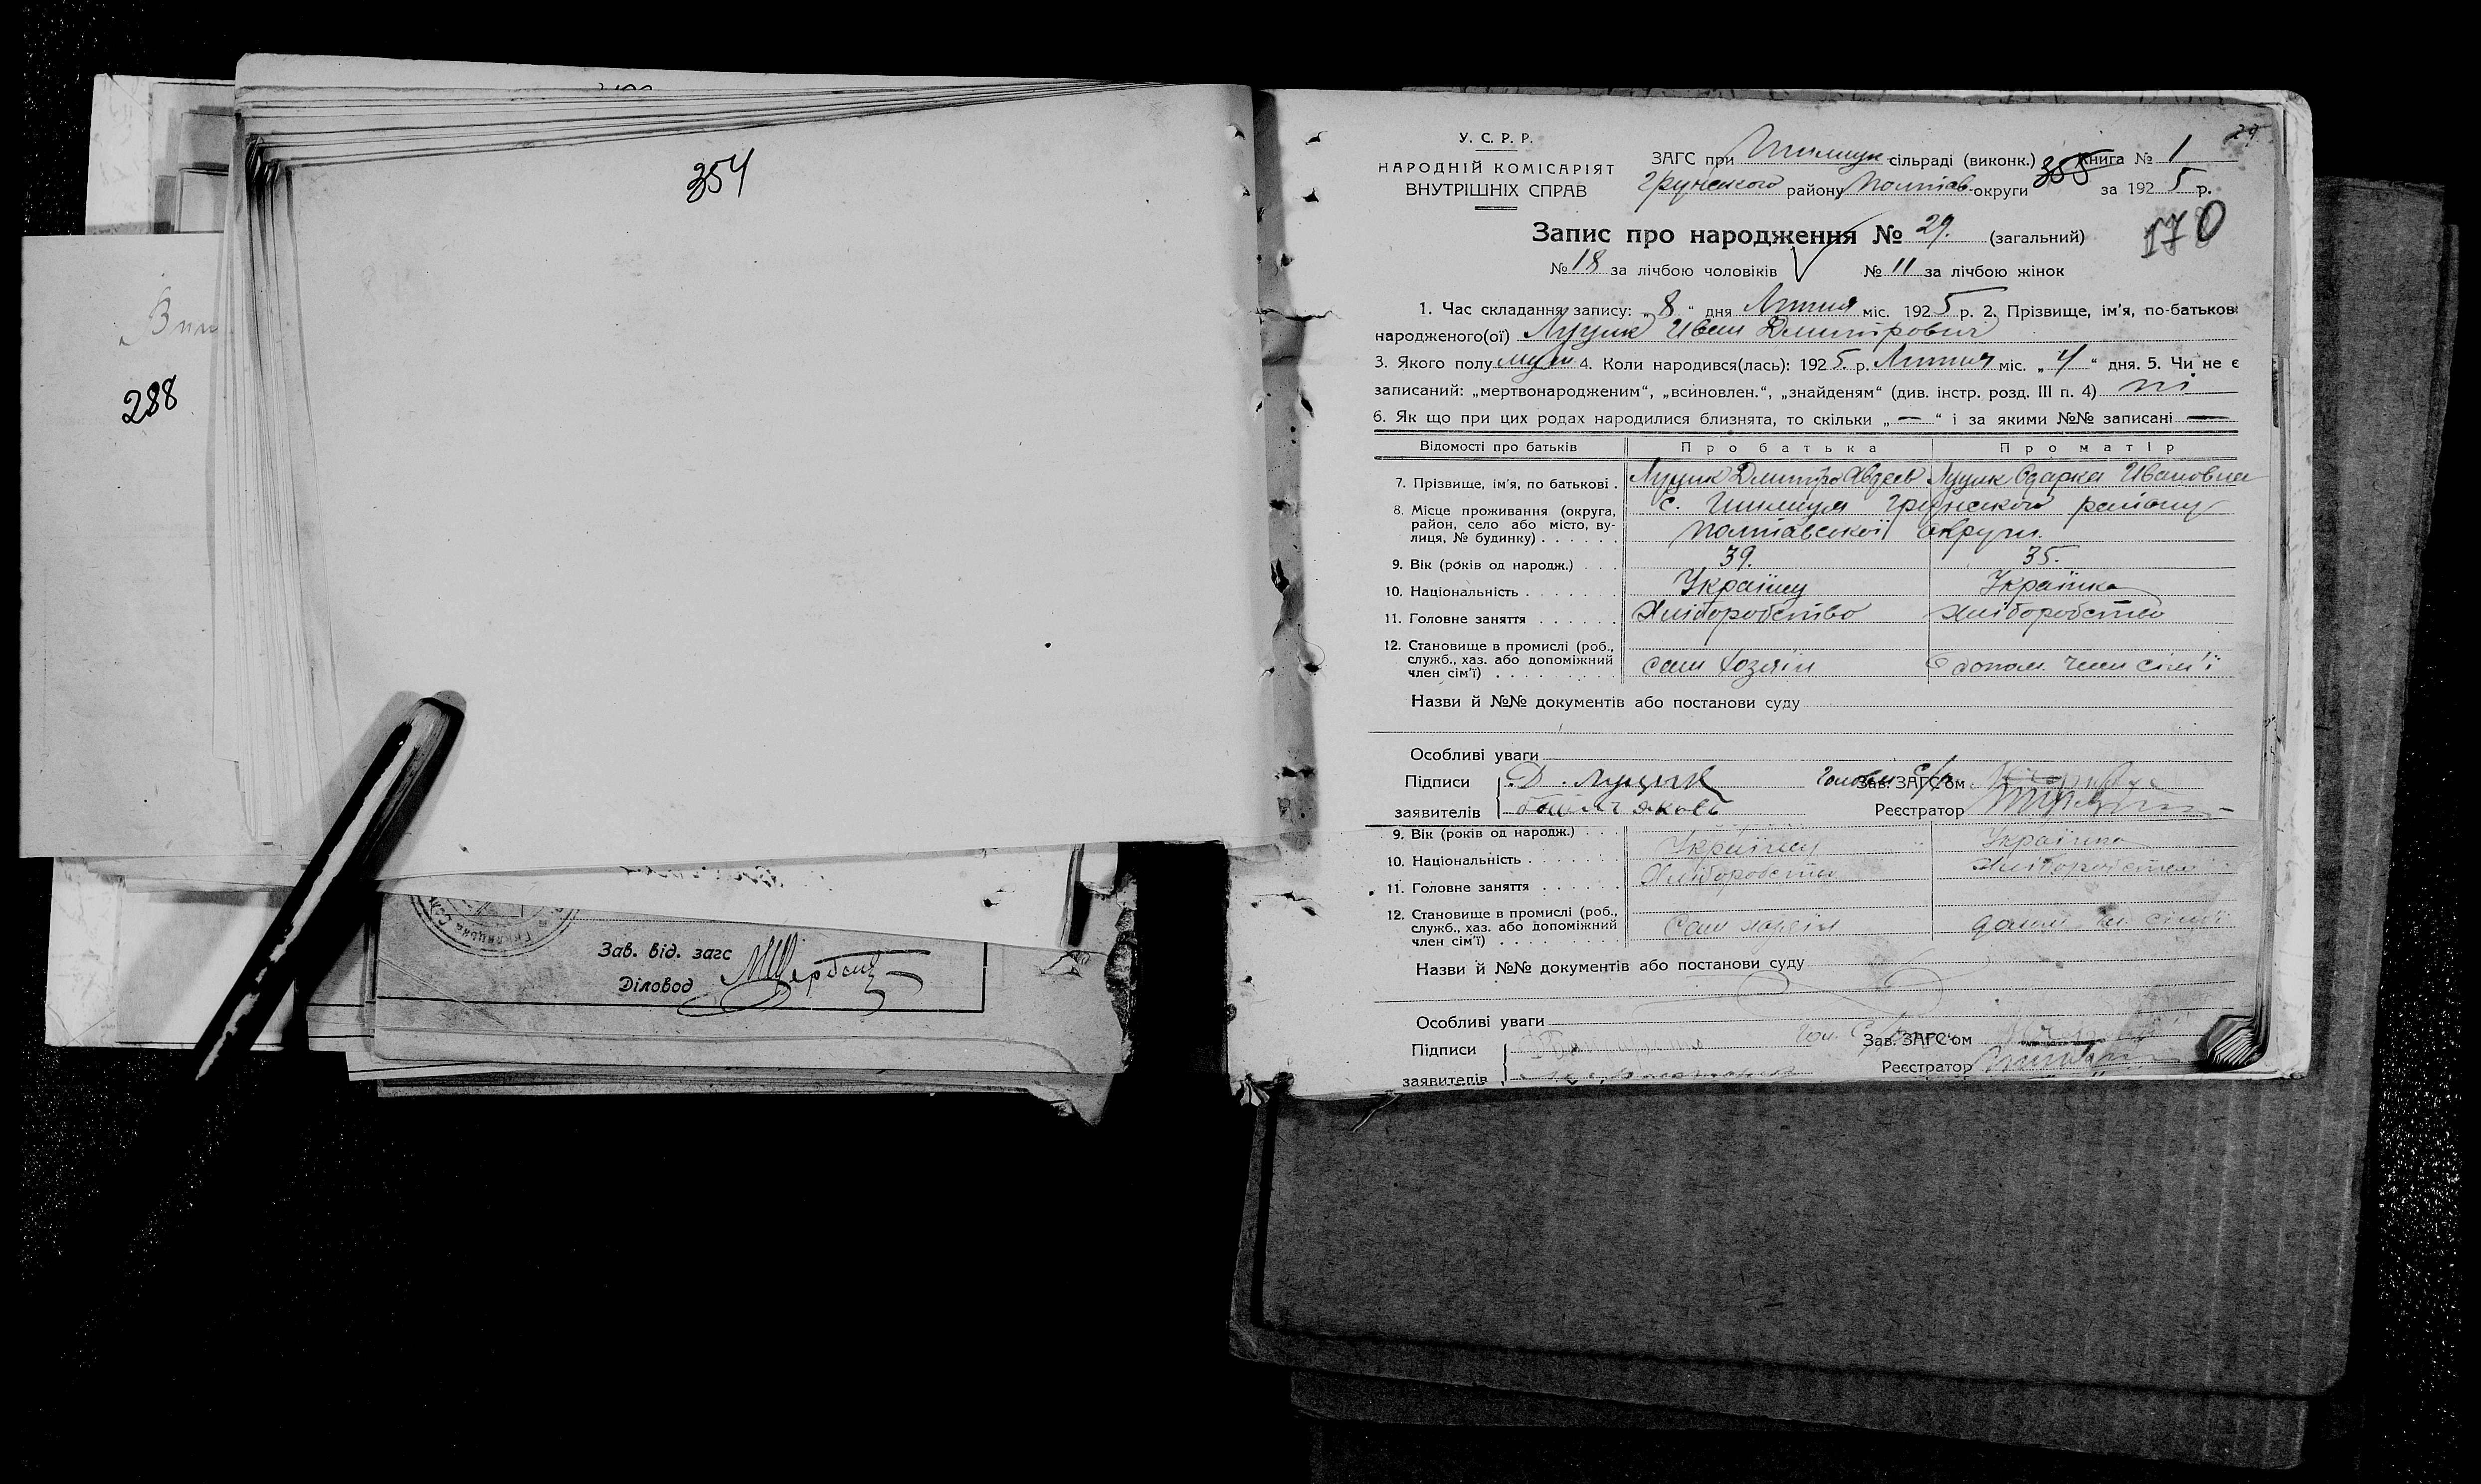 354
288
Зав. від. загс
Діловод
29
У. С. Р. Р.
НАРОДНІЙ КОМІСАРІЯТ
ВНУТРІШНІХ СПРАВ
ЗАГС при сільраді (виконк.) Книга № 1
Грунського району Полтав. округи 355 за 1925 р.
170
Запис про народження № 29. (загальний)
№ 18 за лічбою чоловіків № 11 за лічбою жінок
1. Час складання запису: „8“ дня Липня міс. 1925 р. 2. Прізвище, ім'я, по-батькові
народженого(ої) Луцик Иван Дмитрович
3. Якого полу муж 4. Коли народився(лась): 1925 р. Липня міс. „4“ дня. 5. Чи не є
записаний: „мертвонародженим“, „всиновлен.“, „знайденям“ (див. інстр. розд. III п. 4) ні
6. Як що при цих родах народилися близнята, то скільки „—“ і за якими №№ записані —
Відомості про батьків Про батька Про матір
7. Прізвище, ім'я, по батькові . Луцик Дмитро Авдеев Луцик Одарка Ивановна
8. Місце проживання (округа, район, село або місто, вулиця, № будинку) . . . . . . с. Грунського району
Полтавської округи.
9. Вік (років од народж.) . . . 39. 35.
10. Національність . . . . . . . Українец Українка
11. Головне заняття . . . . . . Хліборобство Хліборобство
12. Становище в промислі (роб.,
служб., хаз. або допоміжний
член сім'ї) . . . . . . . . . сам хозяїн допом. член сім'ї
Назви й №№ документів або постанови суду
Особливі уваги
Підписи Д. Луцик Голова С/р Зав. ЗАГС'ом
заявителів Реєстратор
9. Вік (років од народж.) . . .
10. Національність . . . . . . . Українец Українка
11. Головне заняття . . . . . . Хліборобство Хліборобство
12. Становище в промислі (роб.,
служб., хаз. або допоміжний
член сім'ї) . . . . . . . . . сам хозяїн допом. чл. сім'ї
Назви й №№ документів або постанови суду
Особливі уваги
Підписи Гол. С/р Зав. ЗАГС'ом
заявителів Реєстратор